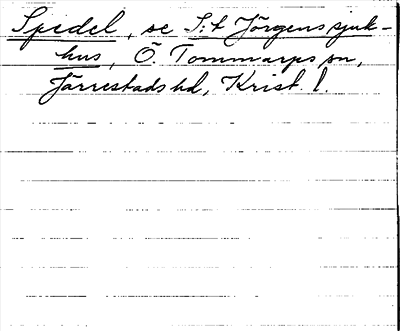 Spedel, se S:t Jörgens sjuk-
hus, Ö. Tommarps sn,
Järrestads hd, Krist. l.